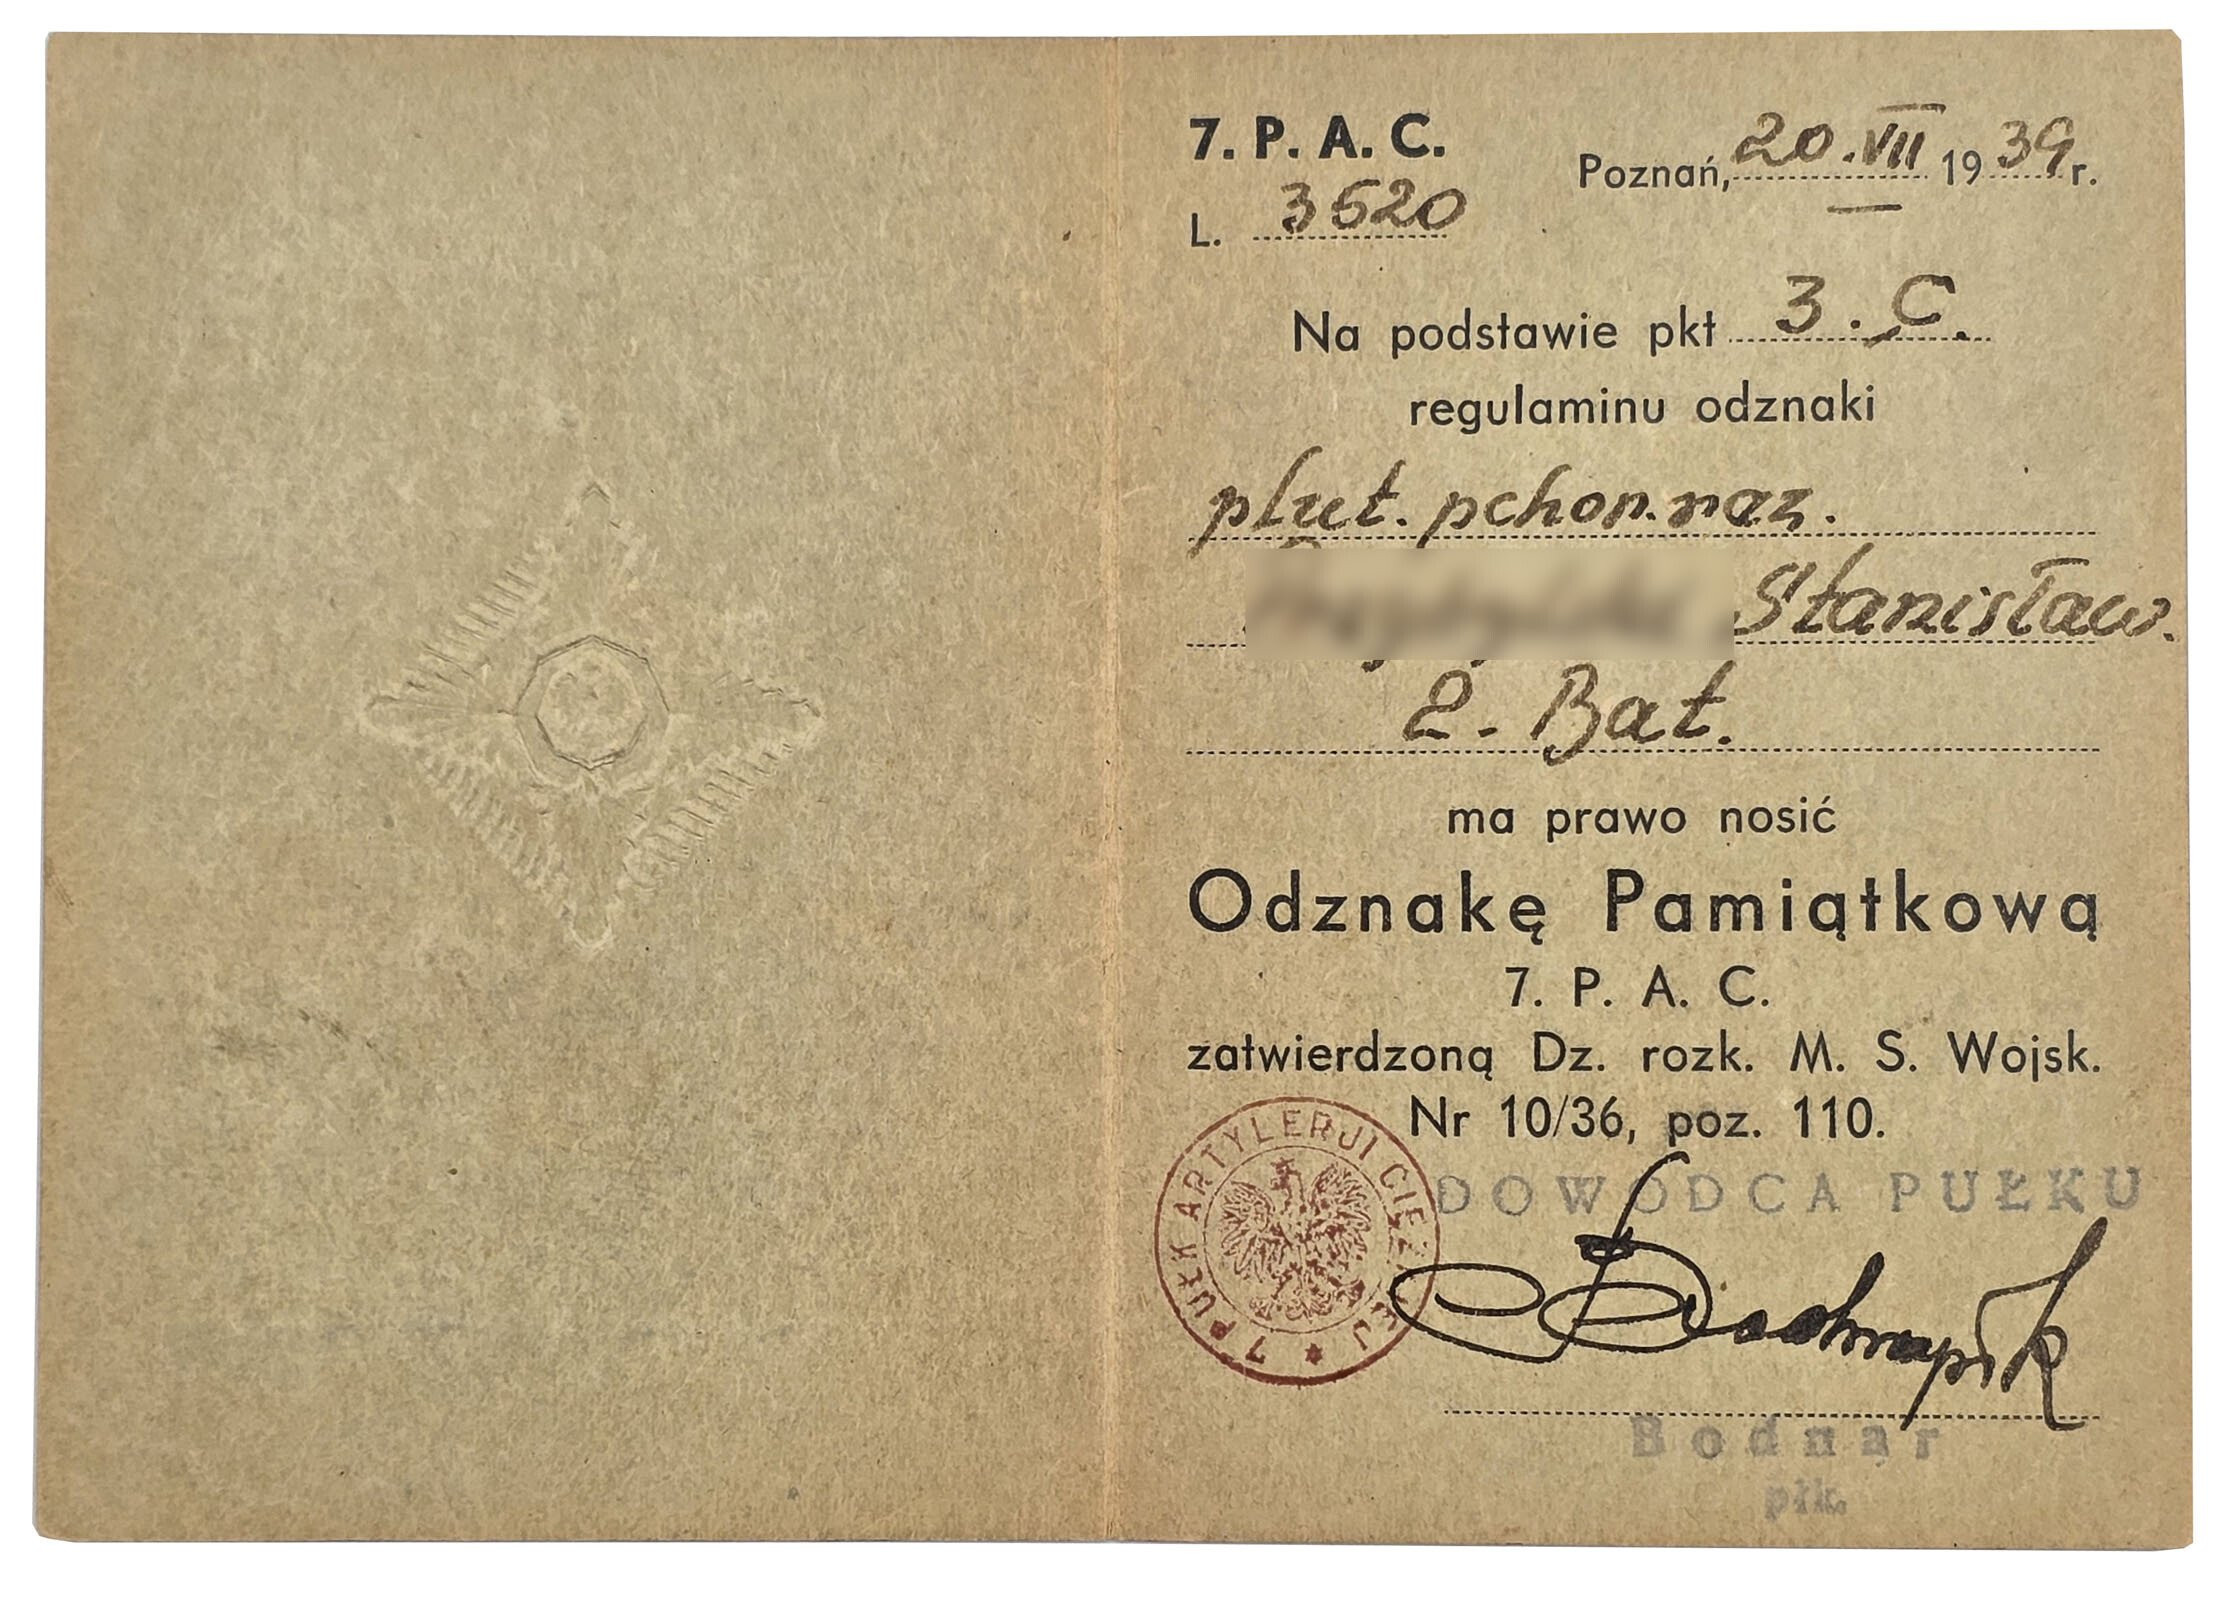 7. P. A. C.
Poznań, 20. VII 1939 r.
L. 3520
Na podstawie pkt 3. C.
regulaminu odznaki
plut. pchor. raz.
Stanisław.
2. Bat.
ma prawo nosić
Odznakę Pamiątkową
7. P. A. C.
zatwierdzoną Dz. rozk. M. S. Wojsk.
Nr 10/36, poz. 110.
7 PUŁK ARTYLERJI CIĘŻKIEJ
DOWÓDCA PUŁKU
Bodnar
płk.